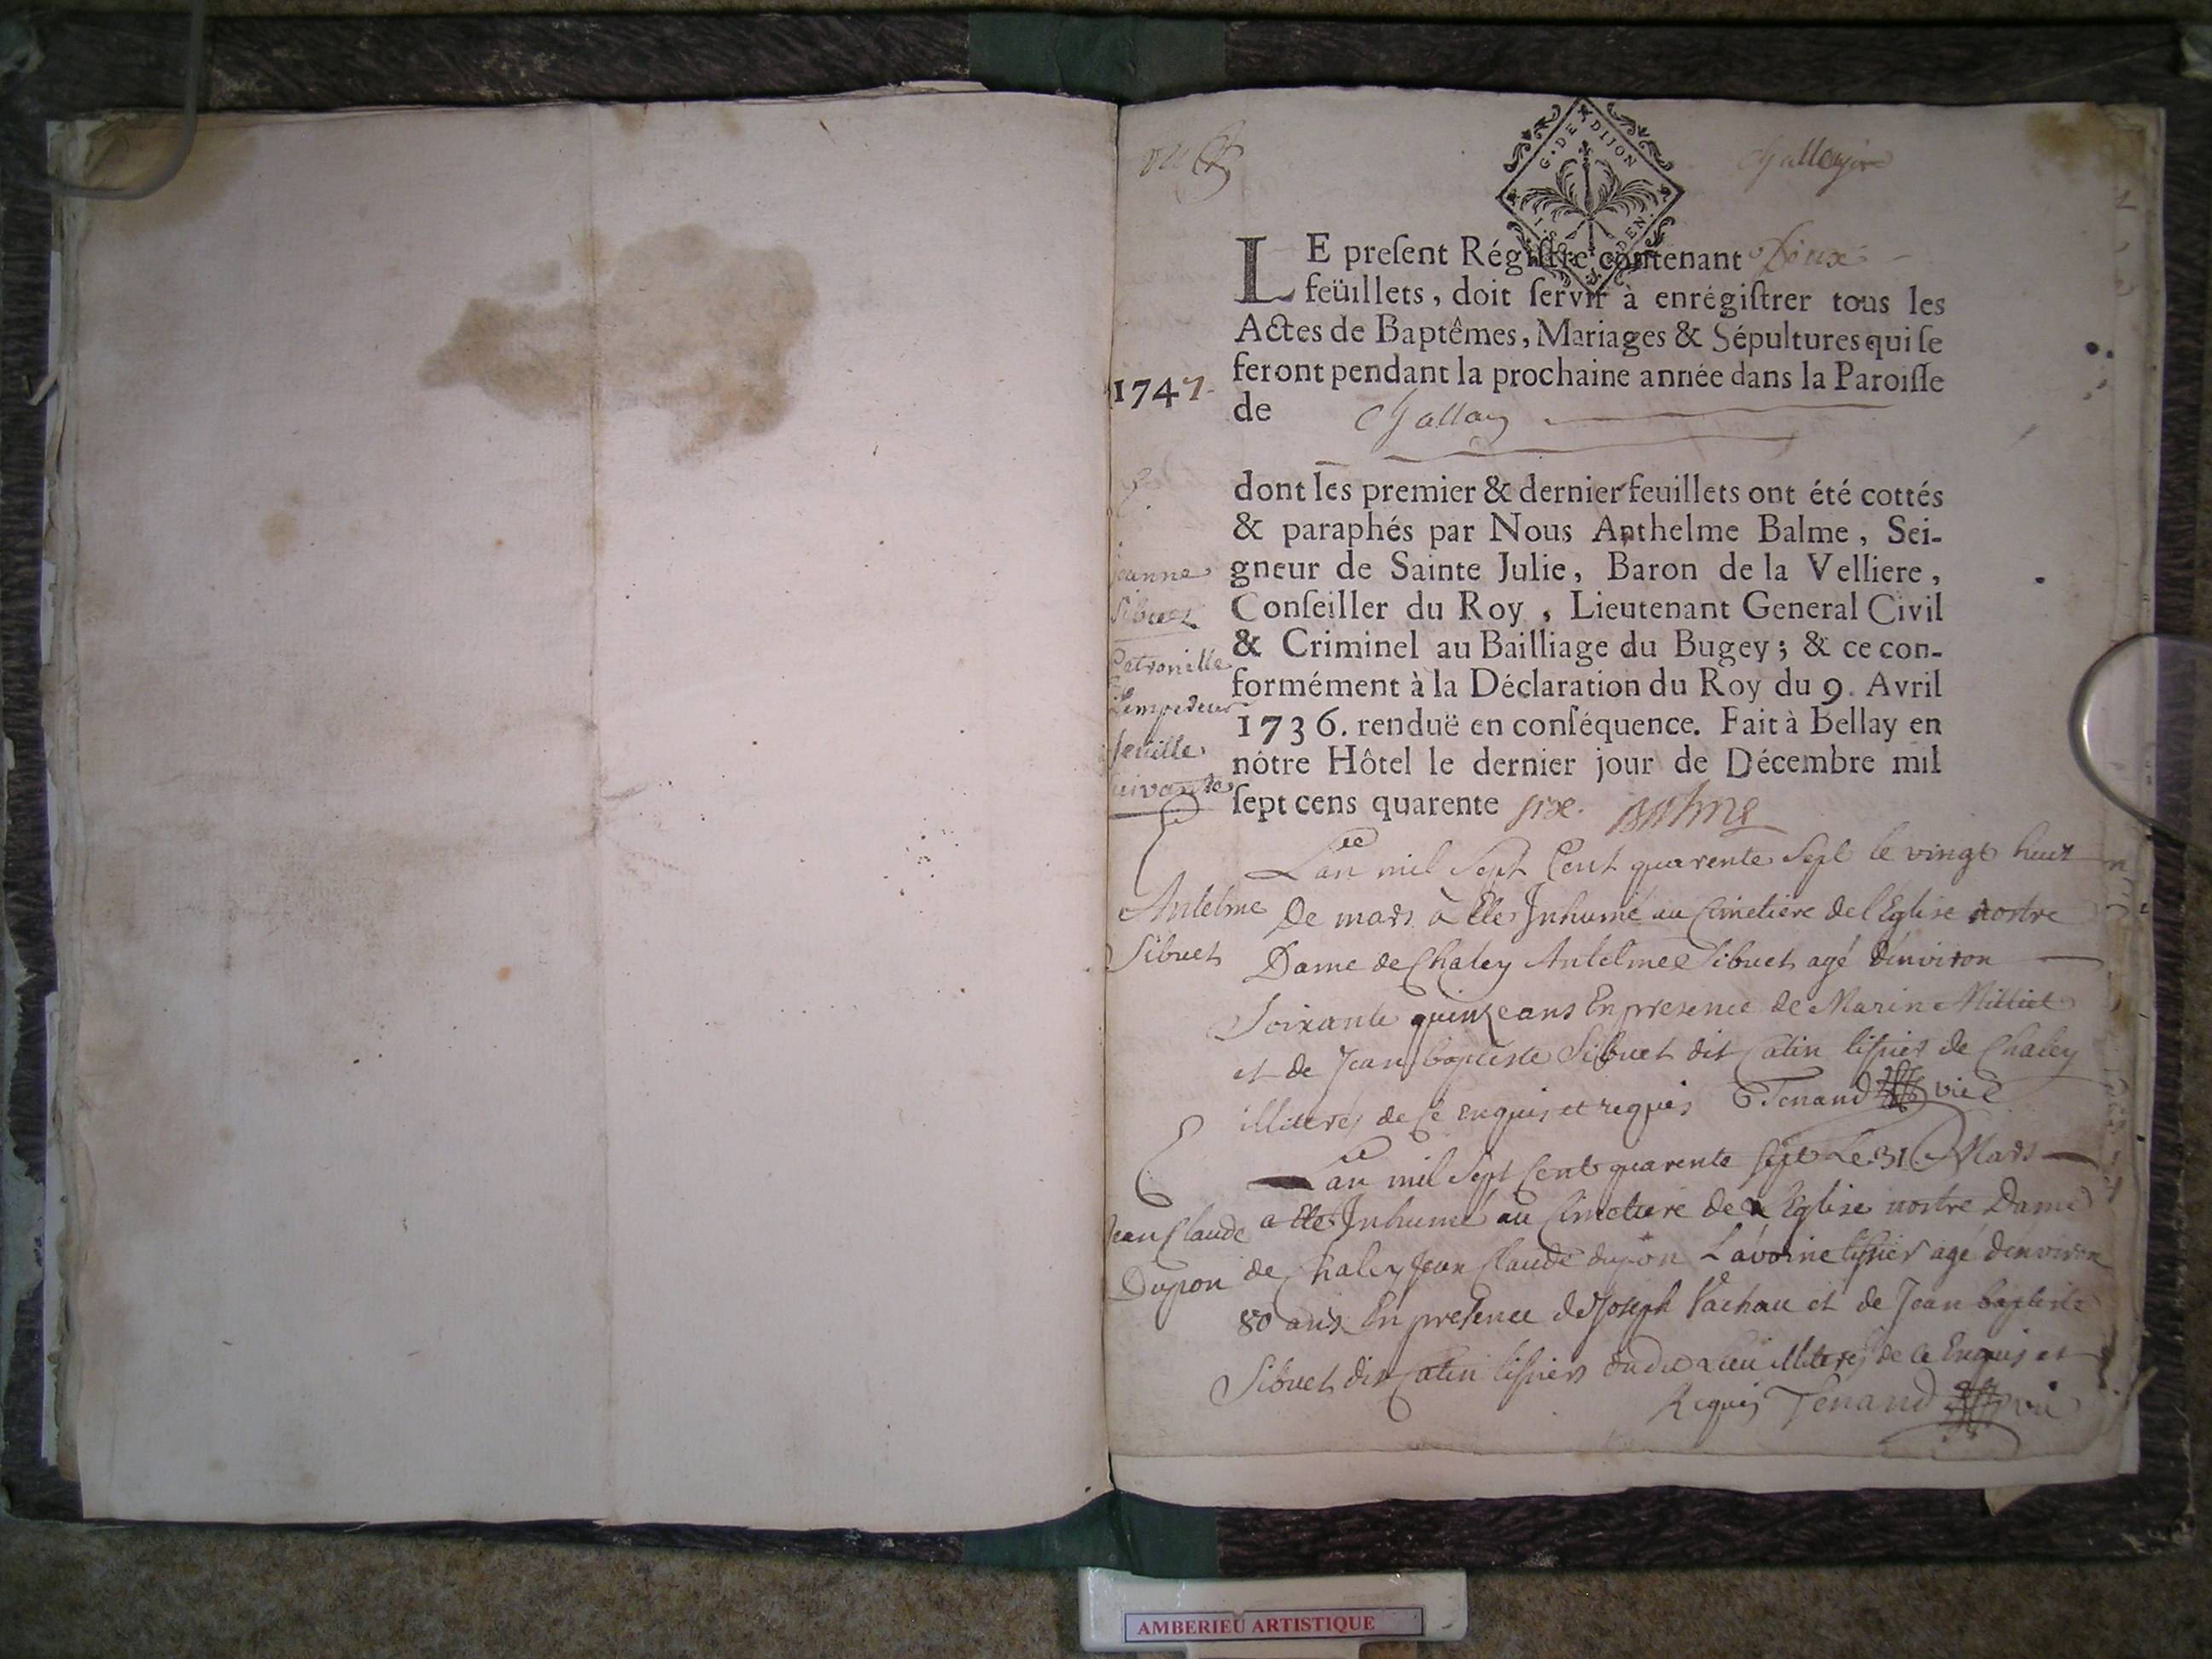 G. DE DIJON
DEN.
LE preſent Régiſtre contenant Deux
feüillets, doit ſervir à enrégiſtrer tous les
Actes de Baptêmes, Mariages & Sépultures qui ſe
feront pendant la prochaine année dans la Paroiſſe
1747
de Challay
dont les premier & dernier feuillets ont été cottés
& paraphés par Nous Anthelme Balme, Sei-
gneur de Sainte Julie, Baron de la Velliere,
Conſeiller du Roy, Lieutenant General Civil
& Criminel au Bailliage du Bugey; & ce con-
formément à la Déclaration du Roy du 9. Avril
1736. renduë en conſéquence. Fait à Bellay en
nôtre Hôtel le dernier jour de Décembre mil
ſept cens quarente six. Balme
Jeanne
Sibuet
Petronille
Lempereur
feuille
suivante
Lan mil Sept Cent quarente Sept le vingt huit
De mars à Eté Inhumé au Cimetiere de l'Eglise nostre
Dame de Chaley Antelme Sibuet agé d'environ
Soixante quinze ans En presence de Marin Milliet
et de Jean baptiste Sibuet dit Catin tissier de Chaley
illiterés de Ce enquis et requis Tenand vic
Antelme
Sibuet
Lan mil Sept Cent quarente sept Le 31 Mars
a Eté Inhumé au Cimetiere de l'Eglise nostre Dame
de Chaley Jean Claude dupon Lavoine tissier agé denviron
80 ans En presence de Joseph Vachau et de Jean baptiste
Sibuet dit Catin tissiers dudit Lieu illiterés de Ce Enquis et
Requis Tenand vic
Jean Claude
Dupon
AMBERIEU ARTISTIQUE